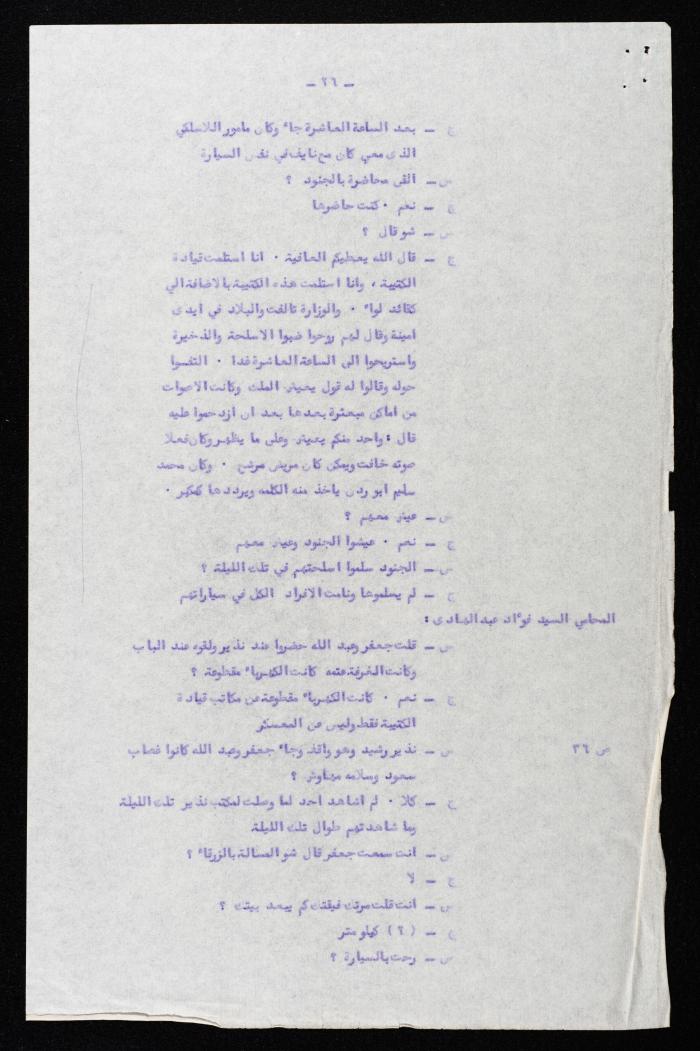 - ٢٦ -
ج - بعد الساعة العاشرة جاء وكان مامور اللاسلكي
الذى معي كان مع نايف في نفس السيارة
س - القى محاضرة بالجنود ؟
ج - نعم . كنت حاضرها
س - شو قال ؟
ج - قال الله يعطيكم العافية . انا استلمت قيادة
الكتيبة ، وانا استلمت هذه الكتيبة بالاضافة الي
كقائد لواء . والوزارة تالفت والبلاد في ايدى
امينة وقال لهم روحوا ضبوا الاسلحة والذخيرة
واستريحوا الى الساعة العاشرة غدا . التفوا
حوله وقالوا له قول يعيش الملك وكانت الاصوات
من اماكن مبعثرة بعدها بعد ان ازدحموا عليه
قال : واحد منكم يعيش وعلى ما يظهر وكان فعلا
صوته خافت ويمكن كان مريض مرشح . وكان محمد
سليم ابو ردن ياخذ منه الكلمه ويرددها كمكبر .
س - عيش معهم ؟
ج - نعم . عيشوا الجنود وعيش معهم
س - الجنود سلموا اسلحتهم في تلك الليلة ؟
ج - لم يسلموها ونامت الافراد الكل في سياراتهم
المحامي السيد فوءاد عبد الهادى :
س - قلت جعفر وعبد الله حضروا عند نذير ولقوه عند الباب
وكانت الغرفة عتمه كانت الكهرباء مقطوعة ؟
ج - نعم . كانت الكهرباء مقطوعة عن مكاتب قيادة
الكتيبة فقط وليس عن المعسكر
ص ٣٦ س - نذير رشيد وهو واقف وجاء جعفر وعبد الله كانوا قصاب
سعود وسلامه معاوش ؟
ج - كلا . لم اشاهد احد لما وصلت لمكتب نذير تلك الليلة
وما شاهدتهم طوال تلك الليلة
س - انت سمعت جعفر قال شو المسالة بالزرقاء ؟
ج - لا
س - انت قلت مرتك فيقتك كم يبعد بيتك ؟
ج - ( ٢ ) كيلو متر
س - رحت بالسيارة ؟